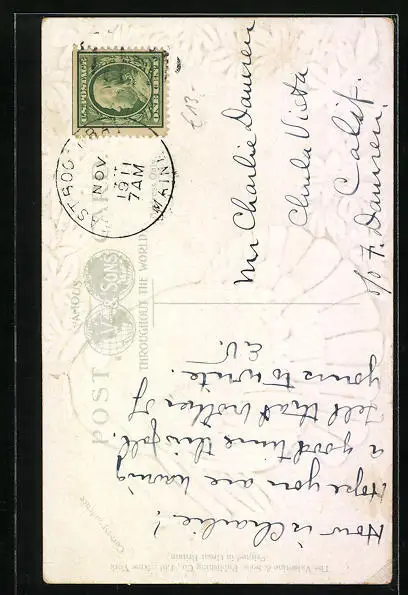 U.S. POSTAGE
ONE CENT
NOV
1911
7 AM
MAINE
FAMOUS
V & SONS
THROUGHOUT THE WORLD
POST CARD
Mr Charlie Damren
Chula Vista
Calif.
c/o F. Damren
How is Charlie?
Hope you are having
a good time this fall.
Tell that brother of
yours to write.
E.V.
Correspondence
The Valentine & Sons Publishing Co., Ltd. New York
Printed in Great Britain